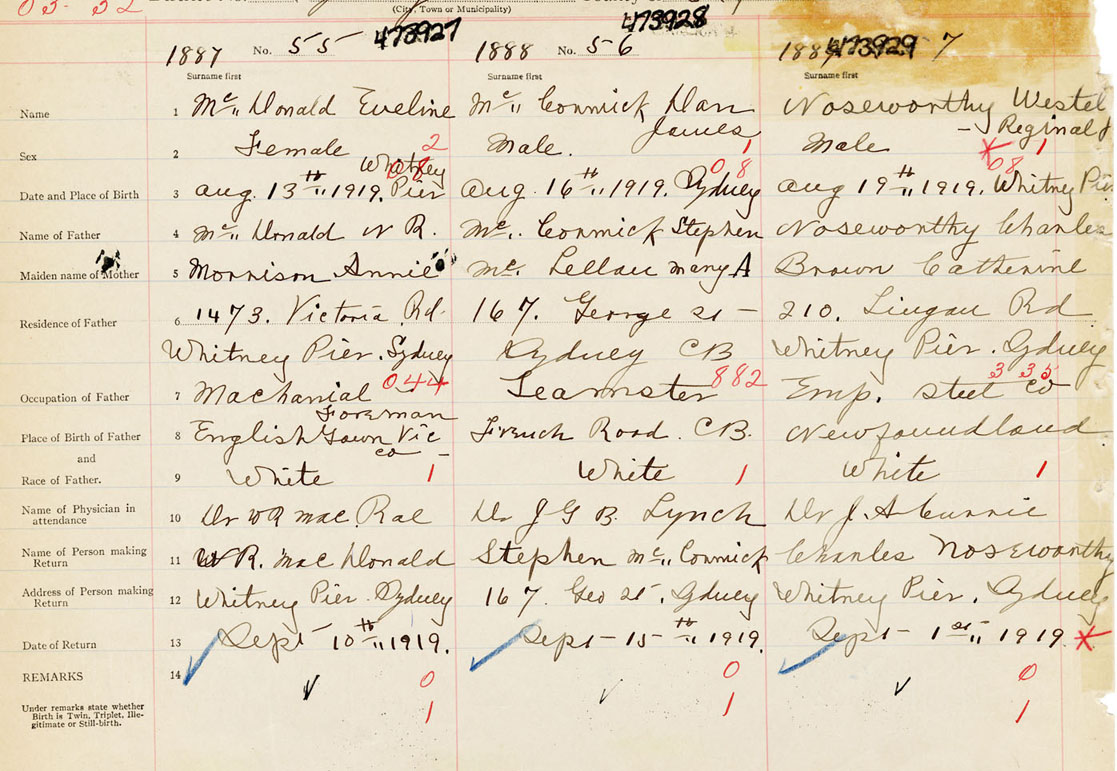 03-32
(City, Town or Municipality)
1887 No. 55 473927 1888 No. 56 473928 473929 7
Surname first Surname first Surname first
Name 1 Mc" Donald Eveline Mc" Cormick Dan Noseworthy Westel
James - Reginald
Sex 2 Female 2 Male. 1 Male 1
Whitney 08 08 08
Date and Place of Birth 3 Aug. 13th" 1919. Pier Aug. 16th" 1919. Sydney Aug 19th" 1919. Whitney Pier
Name of Father 4 Mc" Donald N R. Mc". Cormick Stephen Noseworthy Charles
Maiden name of Mother 5 Morrison Annie Mc. Lellan Mary A Brown Catherine
Residence of Father 6 1473. Victoria Rd. 167. George St - 210. Lingan Rd
Whitney Pier. Sydney Sydney CB Whitney Pier. Sydney
044 882 335
Occupation of Father 7 Machanial Teamster Emp. Steel Co
Foreman
Place of Birth of Father 8 English Town Vic French Road. CB. Newfoundland
co -
and
Race of Father. 9 White 1 White 1 White 1
Name of Physician in
attendance 10 Dr W R Mac Rae Dr J G B. Lynch Dr J. A Currie
Name of Person making
Return 11 W R. Mac Donald Stephen Mc" Cormick Charles Noseworthy
Address of Person making
Return 12 Whitney Pier. Sydney 167. Geo St. Sydney Whitney Pier. Sydney
Date of Return 13 Sept 10th" 1919. Sept - 15th" 1919. Sept - 1st" 1919.
REMARKS 14 0 0 0
Under remarks state whether
Birth is Twin, Triplet, Ille-
gitimate or Still-birth. 1 1 1